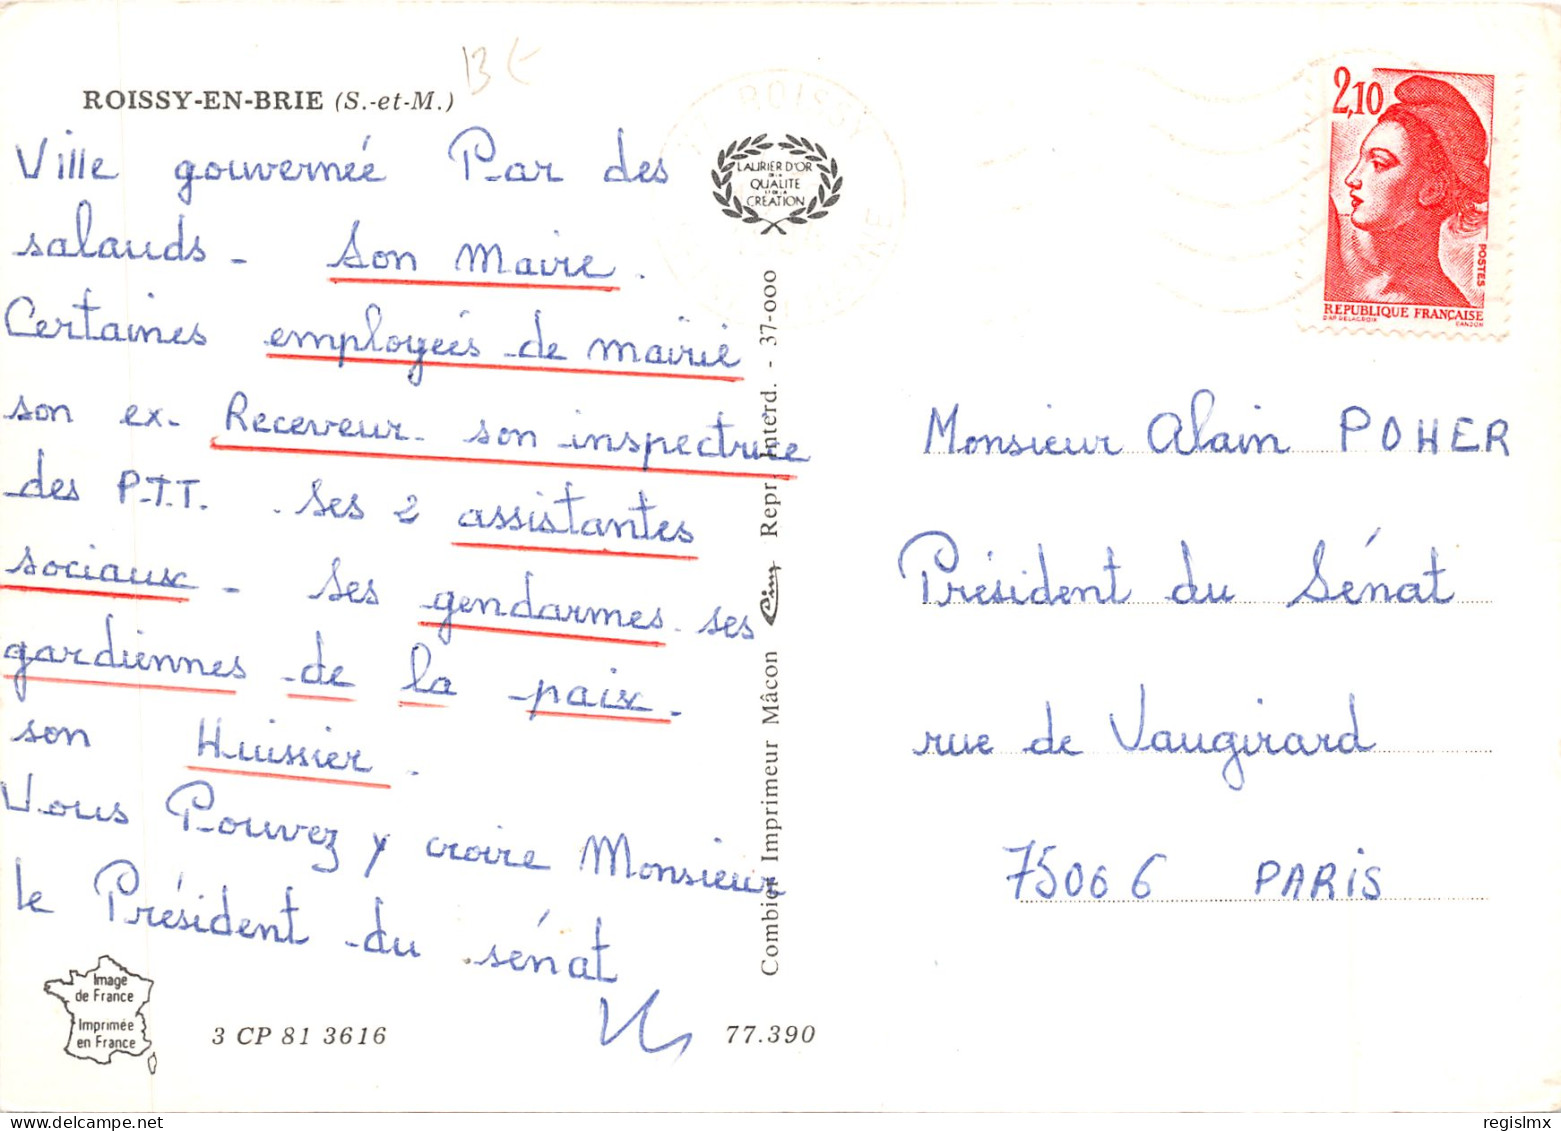 ROISSY-EN-BRIE (S.-et-M.)
Ville gouvernée Par des
salauds - Son Maire.
Certaines employées de mairie
son ex- Receveur - son inspectrice
des P.T.T. . Ses 2 assistantes
sociaux - Ses gendarmes - ses
gardiennes de la paix -
son Huissier.
Vous Pouvez y croire Monsieur
le Président du sénat
Image
de France
Imprimée
en France
3 CP 81 3616
77.390
LAURIER D'OR
DE LA
QUALITE
ET DE LA
CRÉATION
Combier Imprimeur Mâcon Cim Repr. Interd. - 37-000
ROISSY
2,10
POSTES
REPUBLIQUE FRANÇAISE
D'AP. DELACROIX GANDON
Monsieur Alain POHER
Président du Sénat
rue de Vaugirard
75006 PARIS
regislmx